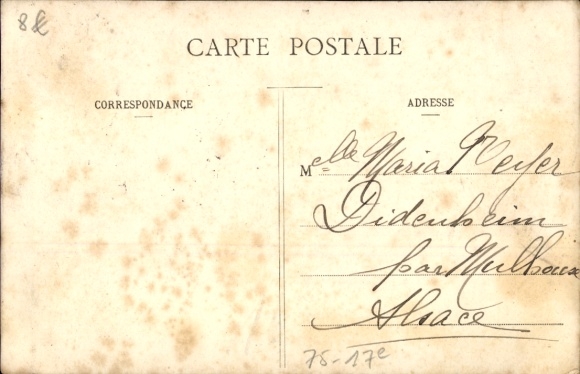 8€
CARTE POSTALE
CORRESPONDANCE
ADRESSE
Melle Maria Meyer
Didenheim
par Mulhouse
Alsace
75-17e